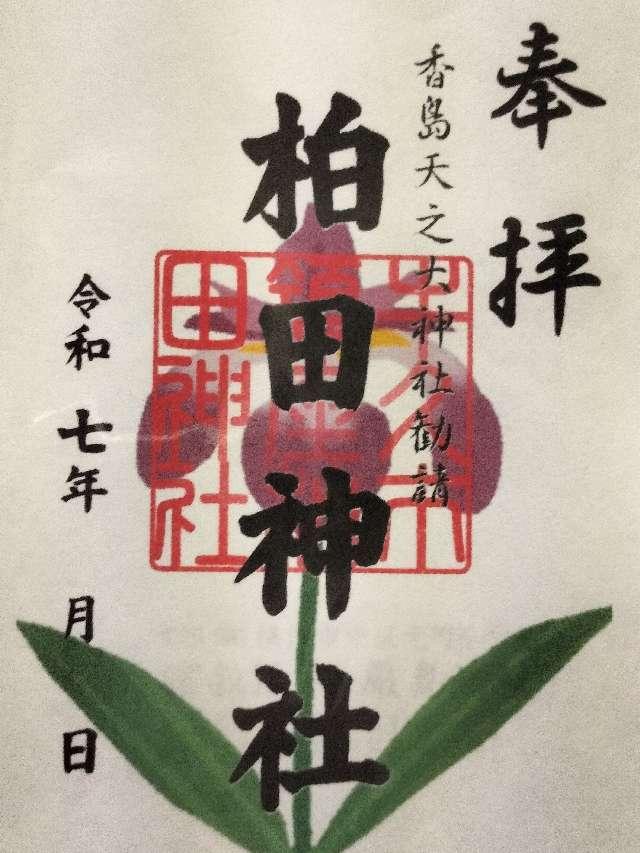 奉拝
香島天之大神社勧請
柏田神社
令和七年 月 日